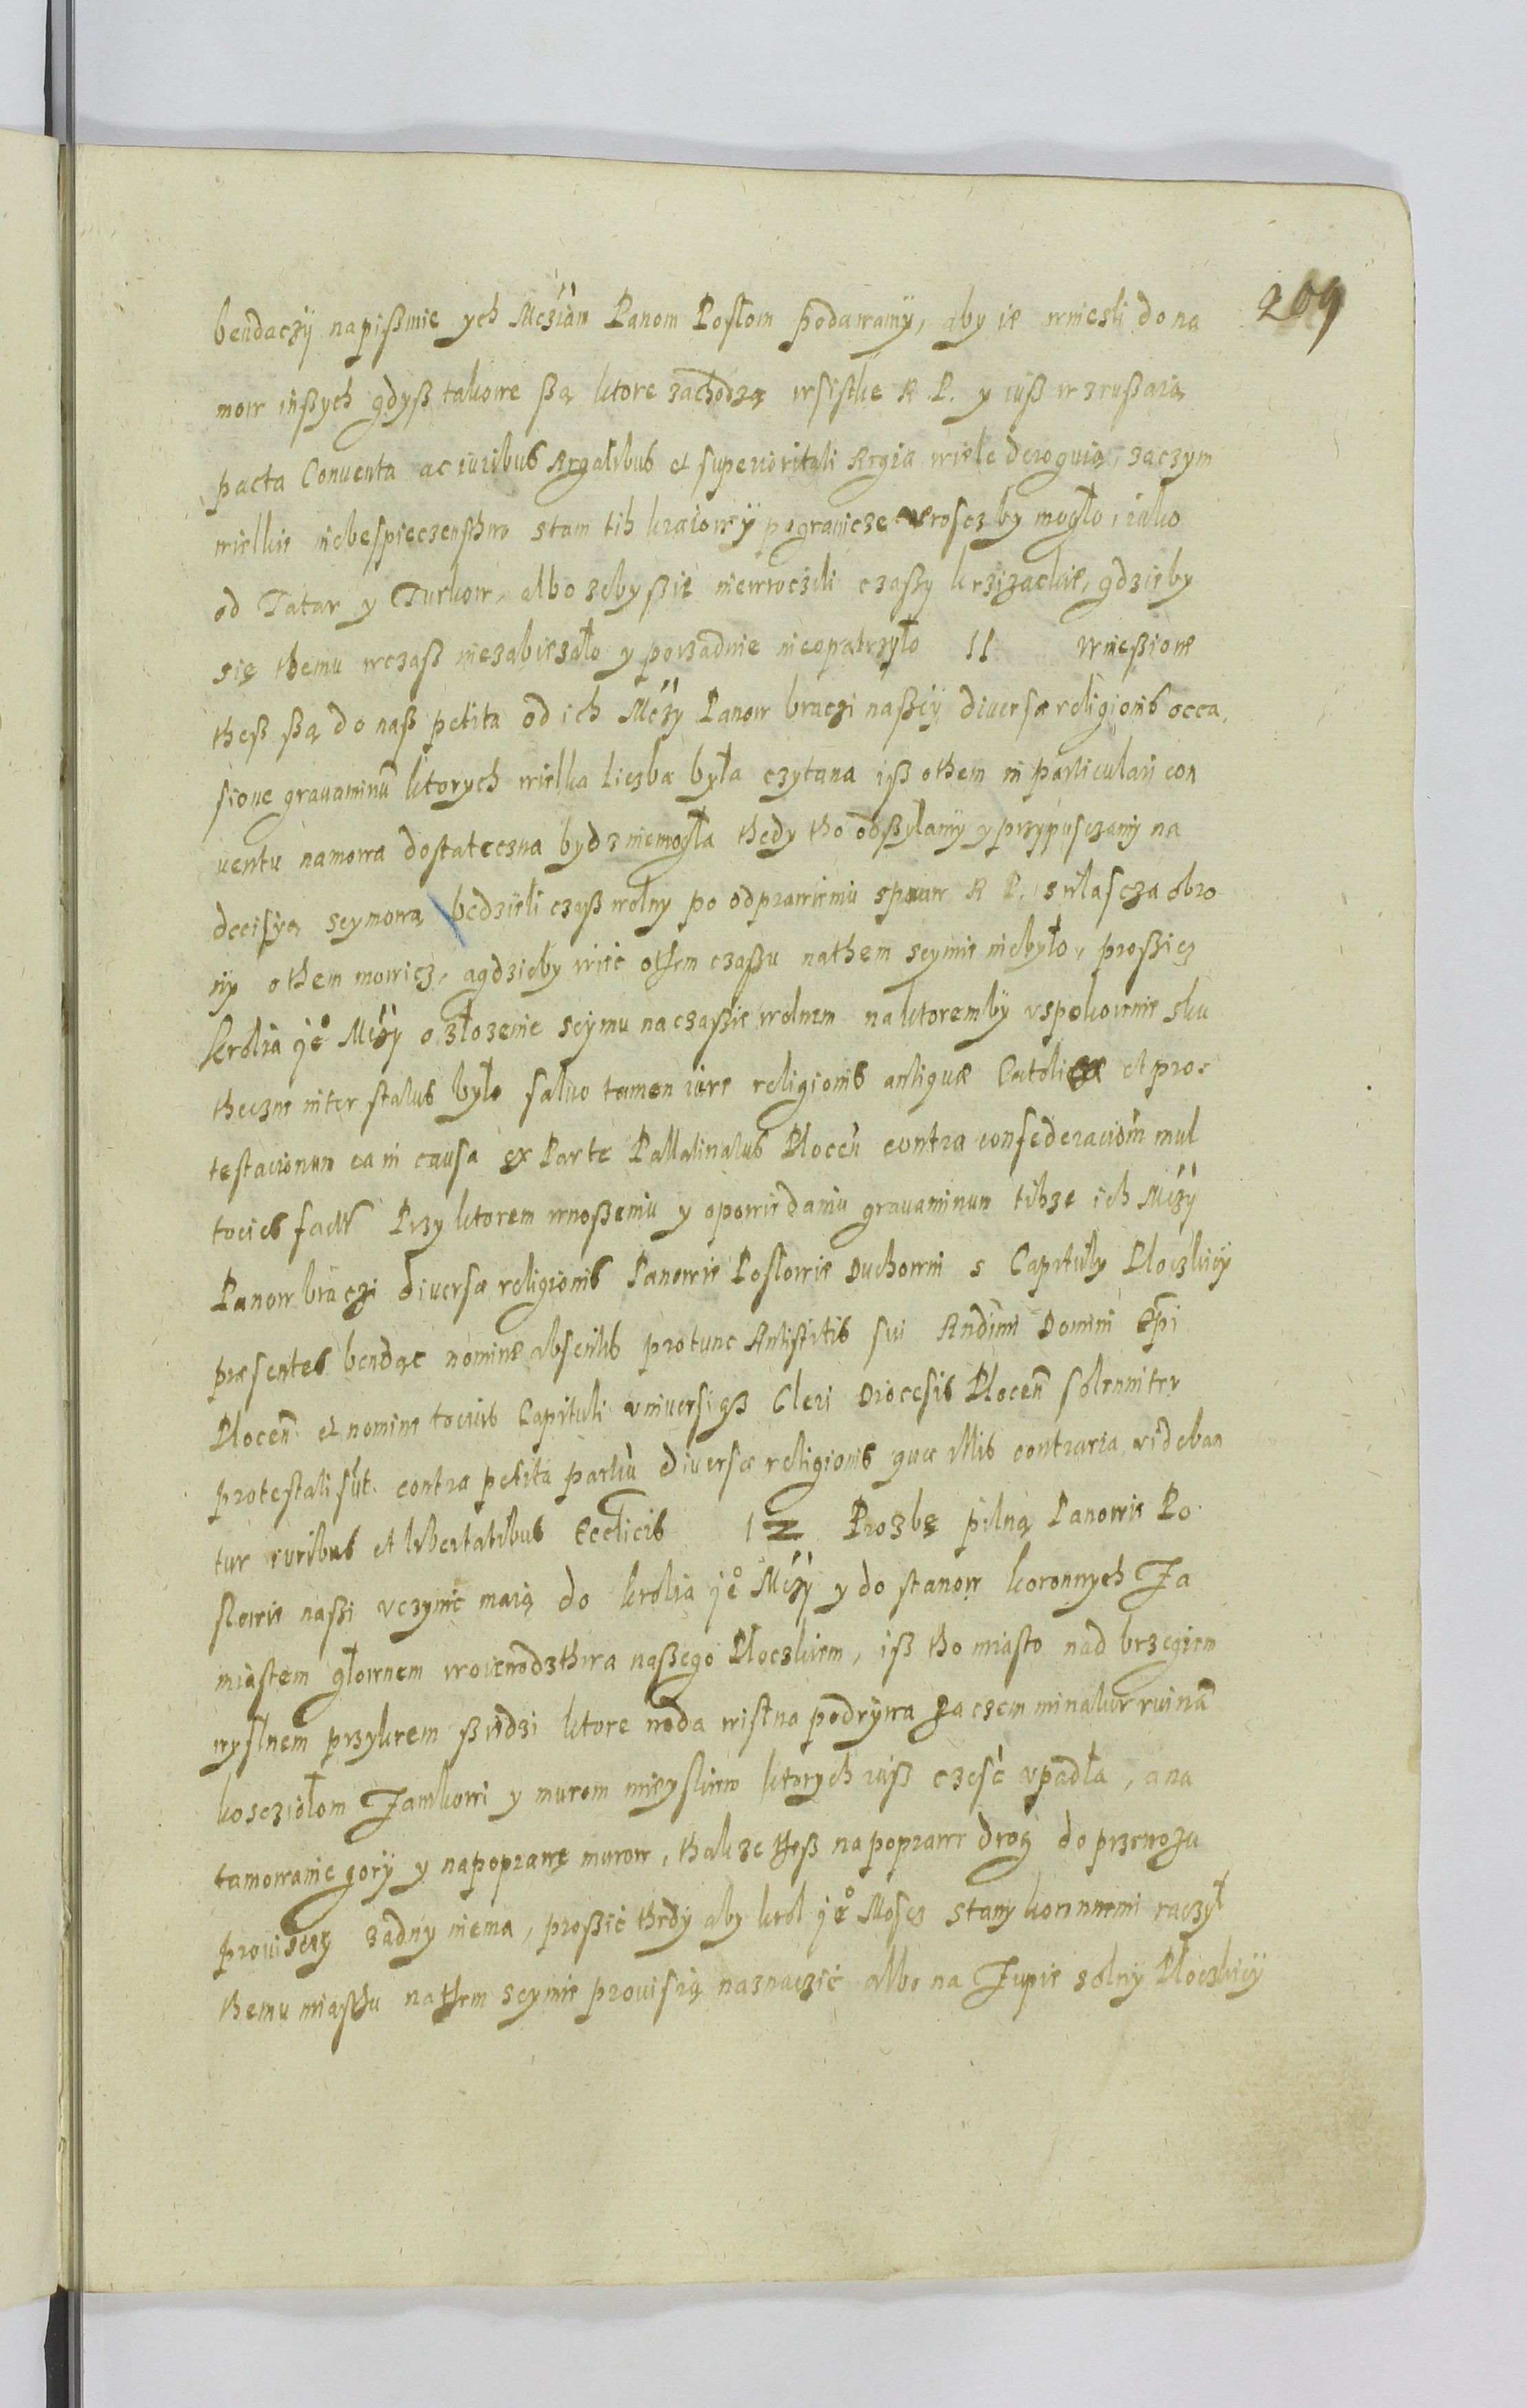 209
bendaczÿ napißmie ych Mcziam Panom Posłom podawamÿ, aby ie wniesli do na
mow inßych gdyß takowe ßą ktore zachodzą wsistke R. P. y iuß wzrußaią
pacta Conuenta ac iuribus Regalibus et superioritati Regia wiele deroguią, zaczym
wielkie niebespieczensthwo stam tih kraiow ÿ pogranicze wroscz by mogło, iako
od Tatar y Turkow, albo zeby ßie niewroczeli czaßy krzizackie, gdzieby
się themu wczaß niezabiezało y porzadnie nieopatrzyło 11 Wnießione
theß ßą do naß petita od ich Mczy Panow braczi naßÿ diuersæ religionis occa,
sione grauaminu ktorych wielka liczba była czytana iß othem in particulari con
uentu namowa dostateczna bydz niemogła thedy tho odßyłamÿ y przypusczamy na
decisÿą seymową bedzieli czaß wolny po odprawieniu spraw R P. swlascza obro
nÿ othem mowicz, agdzieby wiec othem czaßu nathem seymie niebyło, proßicz
krolia je° Mczy o złozenie seymu naczaßie wolnem naktorembÿ uspokoienie sku
theczne inter status było saluo tamen iure religionis antiquæ Catolicæ et pro-
testacionum ea in causa ex Parte Pallatinatus Plocen contra confederaciom mul
tocies fact Przy ktorem wnoßeniu y opowiedaniu grauaminum tihze ich Mczy
Panow braczi diuersæ religionis Panowie Posłowie Duchowni s Capituły Płoczkieÿ
præsentes bendąc nomine absentis protunc Antistitis sui Rndimi Domini Epi
Plocen et nomine tocius Capituli vniversiqz Cleri Diocesis Plocen solenniter
protestati sut. contra petita partiu diuersæ religionis quæ illis contraria videban
tur iuribus et libertatibus Ecclicis 12 Prozbę pilną Panowie Po
słowie naßi vczynic maią do krolia je° Mczy y do stanow koronnych Za
miastem głownem woiewodzthwa naßego Płoczkiem, iß tho miasto nad brzegiem
wyslnem przykrem ßiedzi ktore woda wistna podrÿwa zaczem minatur ruina
kosciołom Zamkowi y murom mieyskiem ktorych iuß część vpadła, ana
tamowanie gorÿ y napoprawę murow, thakze theß napoprawe drog do przewozu
prouiseÿ zadny niema, proßić thedÿ aby krol je° Moscz stany koronnemi raczył
themu miasthu nathem seymie prouisią naznaczić albo na Zupie solnÿ Płoczkieÿ